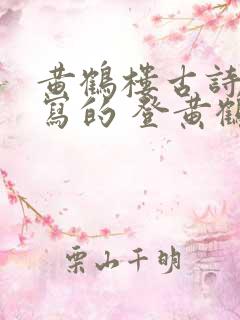 黄鶴樓古詩
寫的 登黄鶴
栗山千明